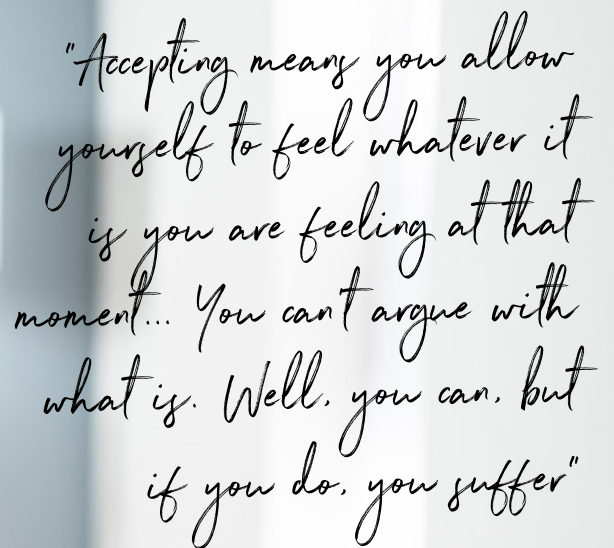 "Accepting means you allow
yourself to feel whatever it
is you are feeling at that
moment... You can't argue with
what is. Well, you can, but
if you do, you suffer"